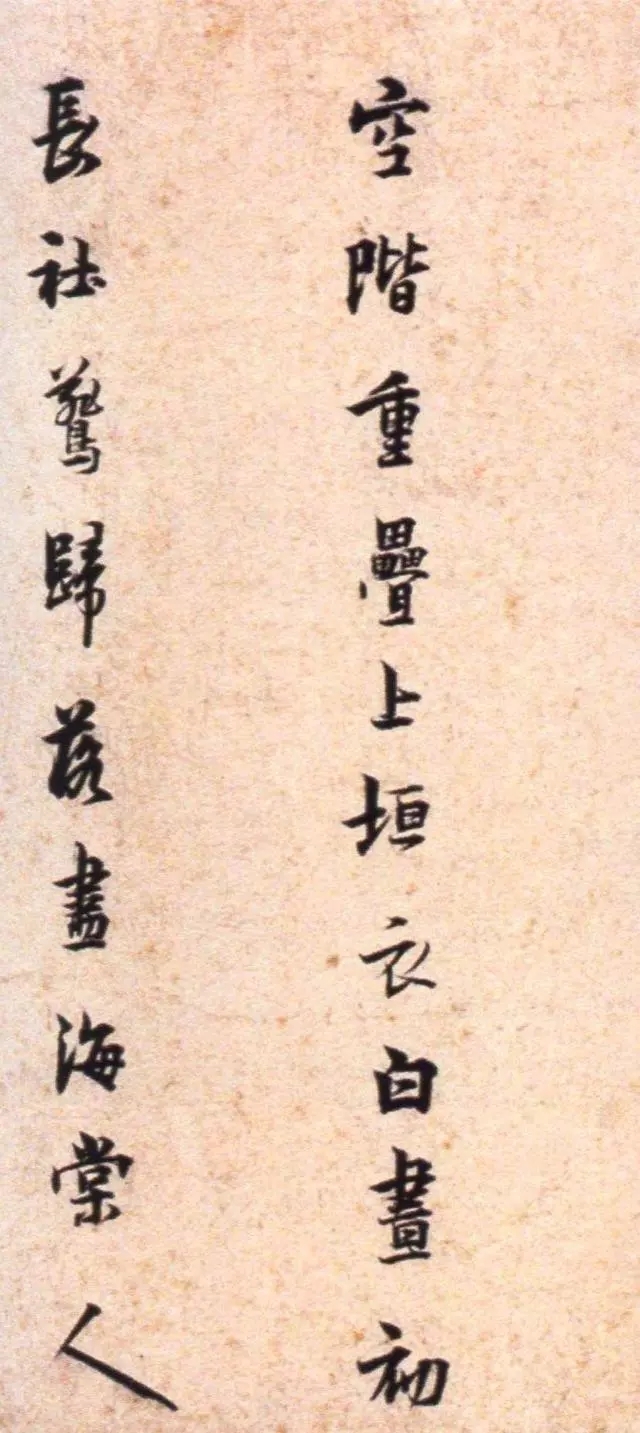 空階重疊上垣衣白晝初
長社鷰歸落盡海棠人